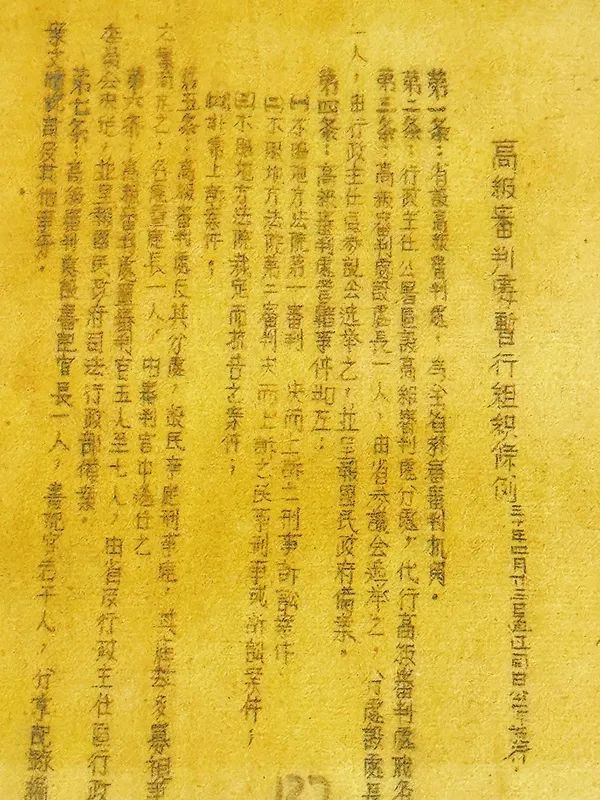 高級審判處暫行組織條例
第一条：省設高級審判處，為全省終審審判机関。
第二条：行政主任公署區設高級審判處分處，代行高級審判處職
第三条：高級審判處設處長一人，由省参議会選举之，分處設處長
一人，由行政主任區参議会選举之，並呈報國民政府備案。
第四条：高級審判處管轄事件如左：
㈠不服地方法院第一審判決而上訴之刑事訴訟案件
㈡不服地方法院第二審判決而上訴之民事刑事或訴訟案件；
㈢不服地方法院裁定而抗告之案件；
㈣非案上訴案件；
第五条：高級審判處及其分處，設民事庭刑事庭，
之，各庭置庭長一人，由審判官中選任之
第六条：高級審判處置審判官五人至七人，由省及行政主任區行政
委員会，並呈報國民政府司法行政部備案。
第七条：高級審判處設書記官長一人，書記官若干人，分掌記錄編
案文牘及其他事务。